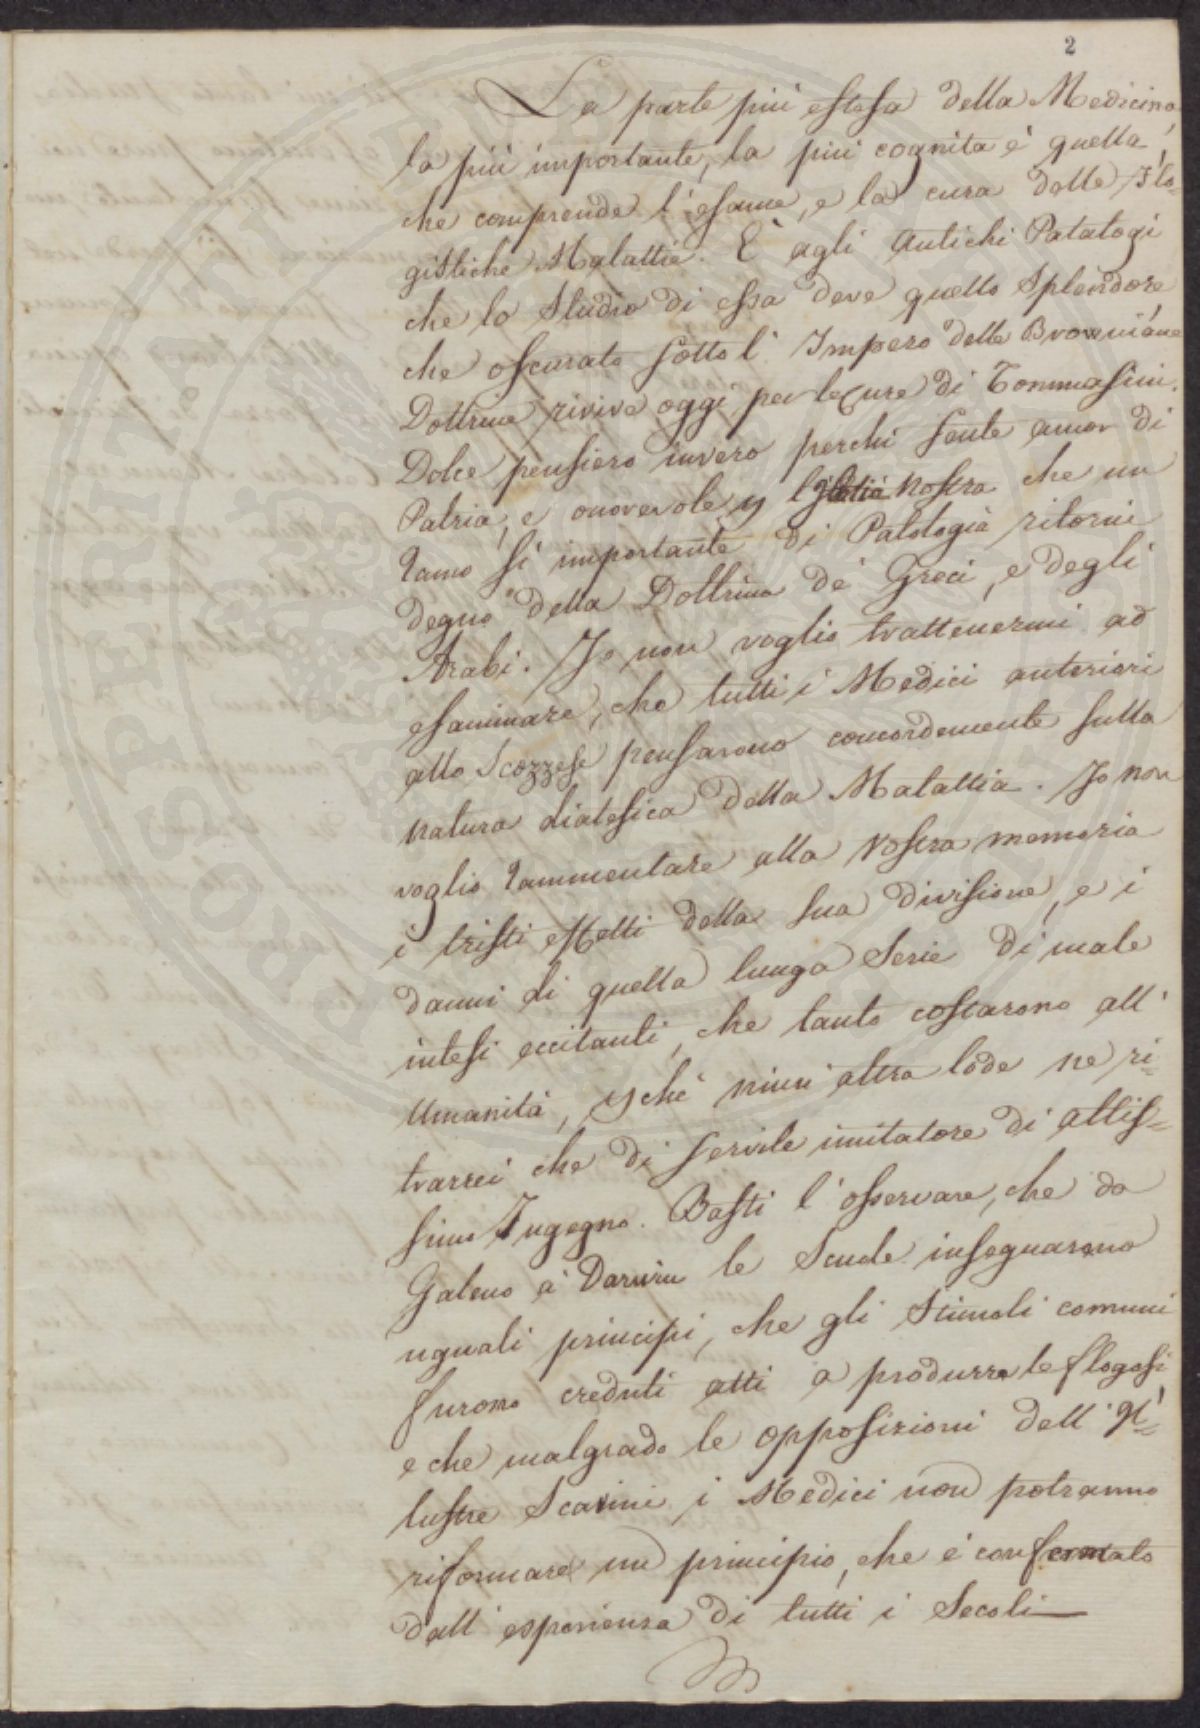 2
La parte più estesa della Medicina,
la più importante, la più cognita è quella,
che comprende l'esame, e la cura delle Flo=
gistiche Malattie. È agli Antichi Patalogi
che lo Studio di essa deve quello Splendore
che oscurato sotto l'Impero delle Browniane
Dottrine rivive oggi per le cure di Tommasini.
Dolce pensiero invero perchi sente amor di
Patria, e onorevole p l' Italia Nostra che un
Ramo sì importante di Patologia ritorni
degno della Dottrina de' Greci, e degli
Arabi. Io non voglio trattenermi ad
esaminare, che tutti i Medici anteriori
allo Scozzese pensarono concordemente sulla
natura diatesica della Malattia. Io non
voglio rammentare alla Vostra memoria
i tristi effetti della sua divisione, e i
danni di quella lunga Serie di male
intesi eccitanti, che tanto costarono all'
Umanità, pchè niun altra lode ne ri=
trarrei che di servile imitatore di altis=
simo Ingegno. Basti l'osservare, che da
Galeno a Darwin le Scuole insegnarono
uguali principi, che gli Stimoli comuni
furono creduti atti a produrre le flogosi
e che malgrado le opposizioni dell' Il=
lustre Scavini i Medici non potranno
riformare un principio, che è confermato
dall' esperienza di tutti i Secoli